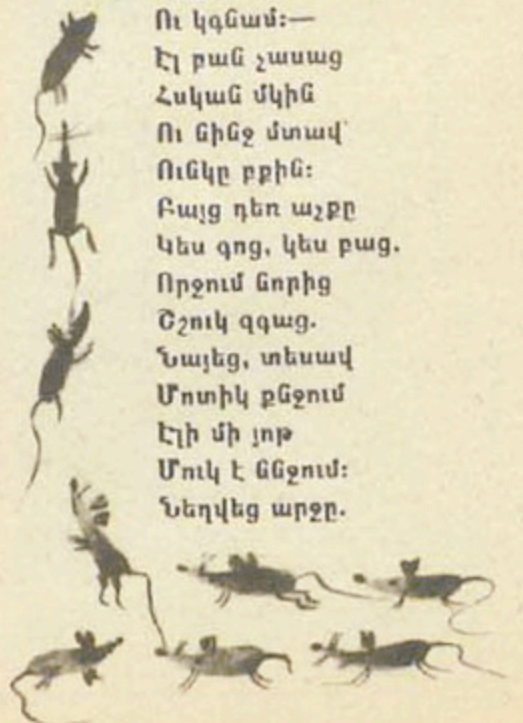 Ու կգնամ:—
Էլ բան չասաց
Հսկան մկին
Ու նինջ մտավ՝
Ունկը բքին:
Բայց դեռ աչքը
Կես գոց, կես բաց.
Որջում նորից
Շշուկ զգաց.
Նայեց, տեսավ
Մոտիկ քնջում
Էլի մի յոթ
Մուկ է ննջում:
Նեղվեց արջը.